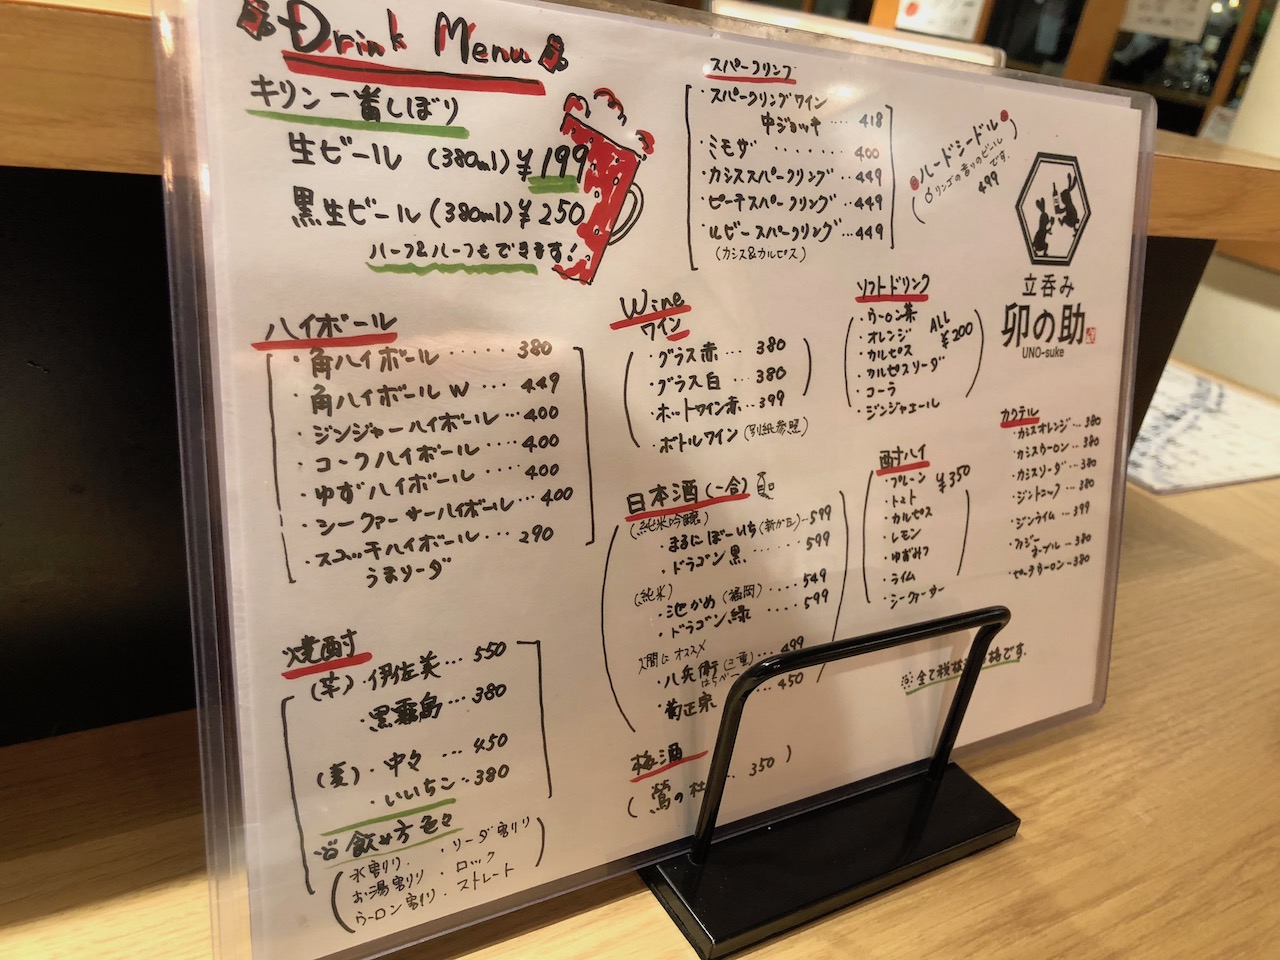 Drink Menu
キリン一番しぼり
生ビール (380ml) ¥199
黒生ビール (380ml) ¥250
ハーフ&ハーフもできます!
ハイボール
・角ハイボール ...... 380
・角ハイボール W ... 449
・ジンジャーハイボール ... 400
・コークハイボール .... 400
・ゆずハイボール .... 400
・シークァーサーハイボール ... 400
・スコッチハイボール ...... 290
うまソーダ
焼酎
(芋)・伊佐美 ... 550
・黒霧島 ... 380
(麦)・中々 ... 450
・いいちこ .. 380
飲み方色々
水割り ・ソーダ割り
お湯割り ・ロック
ウーロン割り ・ストレート
スパークリング
・スパークリングワイン
中ジョッキ .... 418
・ミモザ ....... 400
・カシススパークリング ... 449
・ピーチスパークリング ... 449
・ルビースパークリング ... 449
(カシス&カルピス)
ハードシードル
(リンゴの香りのビールです。
499)
Wine
ワイン
・グラス赤 ... 380
・グラス白 ... 380
・ホットワイン赤 .. 399
・ボトルワイン (別紙参照)
日本酒 (一合)
(純米吟醸)
・まるにぼーいち
599
・ドラゴン黒 ...... 599
(純米)
・池かめ (福岡) .... 549
・ドラゴン緑 .... 599
オススメ
・八兵衛 (三重) 499
・菊正宗 450
梅酒
(鶯の 350)
ソフトドリンク
・ウーロン茶
・オレンジ
・カルピス
・カルピスソーダ
・コーラ
・ジンジャエール
ALL ¥200
酎ハイ
¥350
・プレーン
・トマト
・カルピス
・レモン
・ゆずみつ
・ライム
・シークァーサー
立呑み
卯の助
UNO-suke
カクテル
・カシスオレンジ ... 380
・カシスウーロン ... 380
・カシスソーダ ... 380
・ジントニック ... 380
・ジンライム ... 399
・ファジー
ネーブル ... 380
・ピーチウーロン ... 380
※全て税抜 格です。